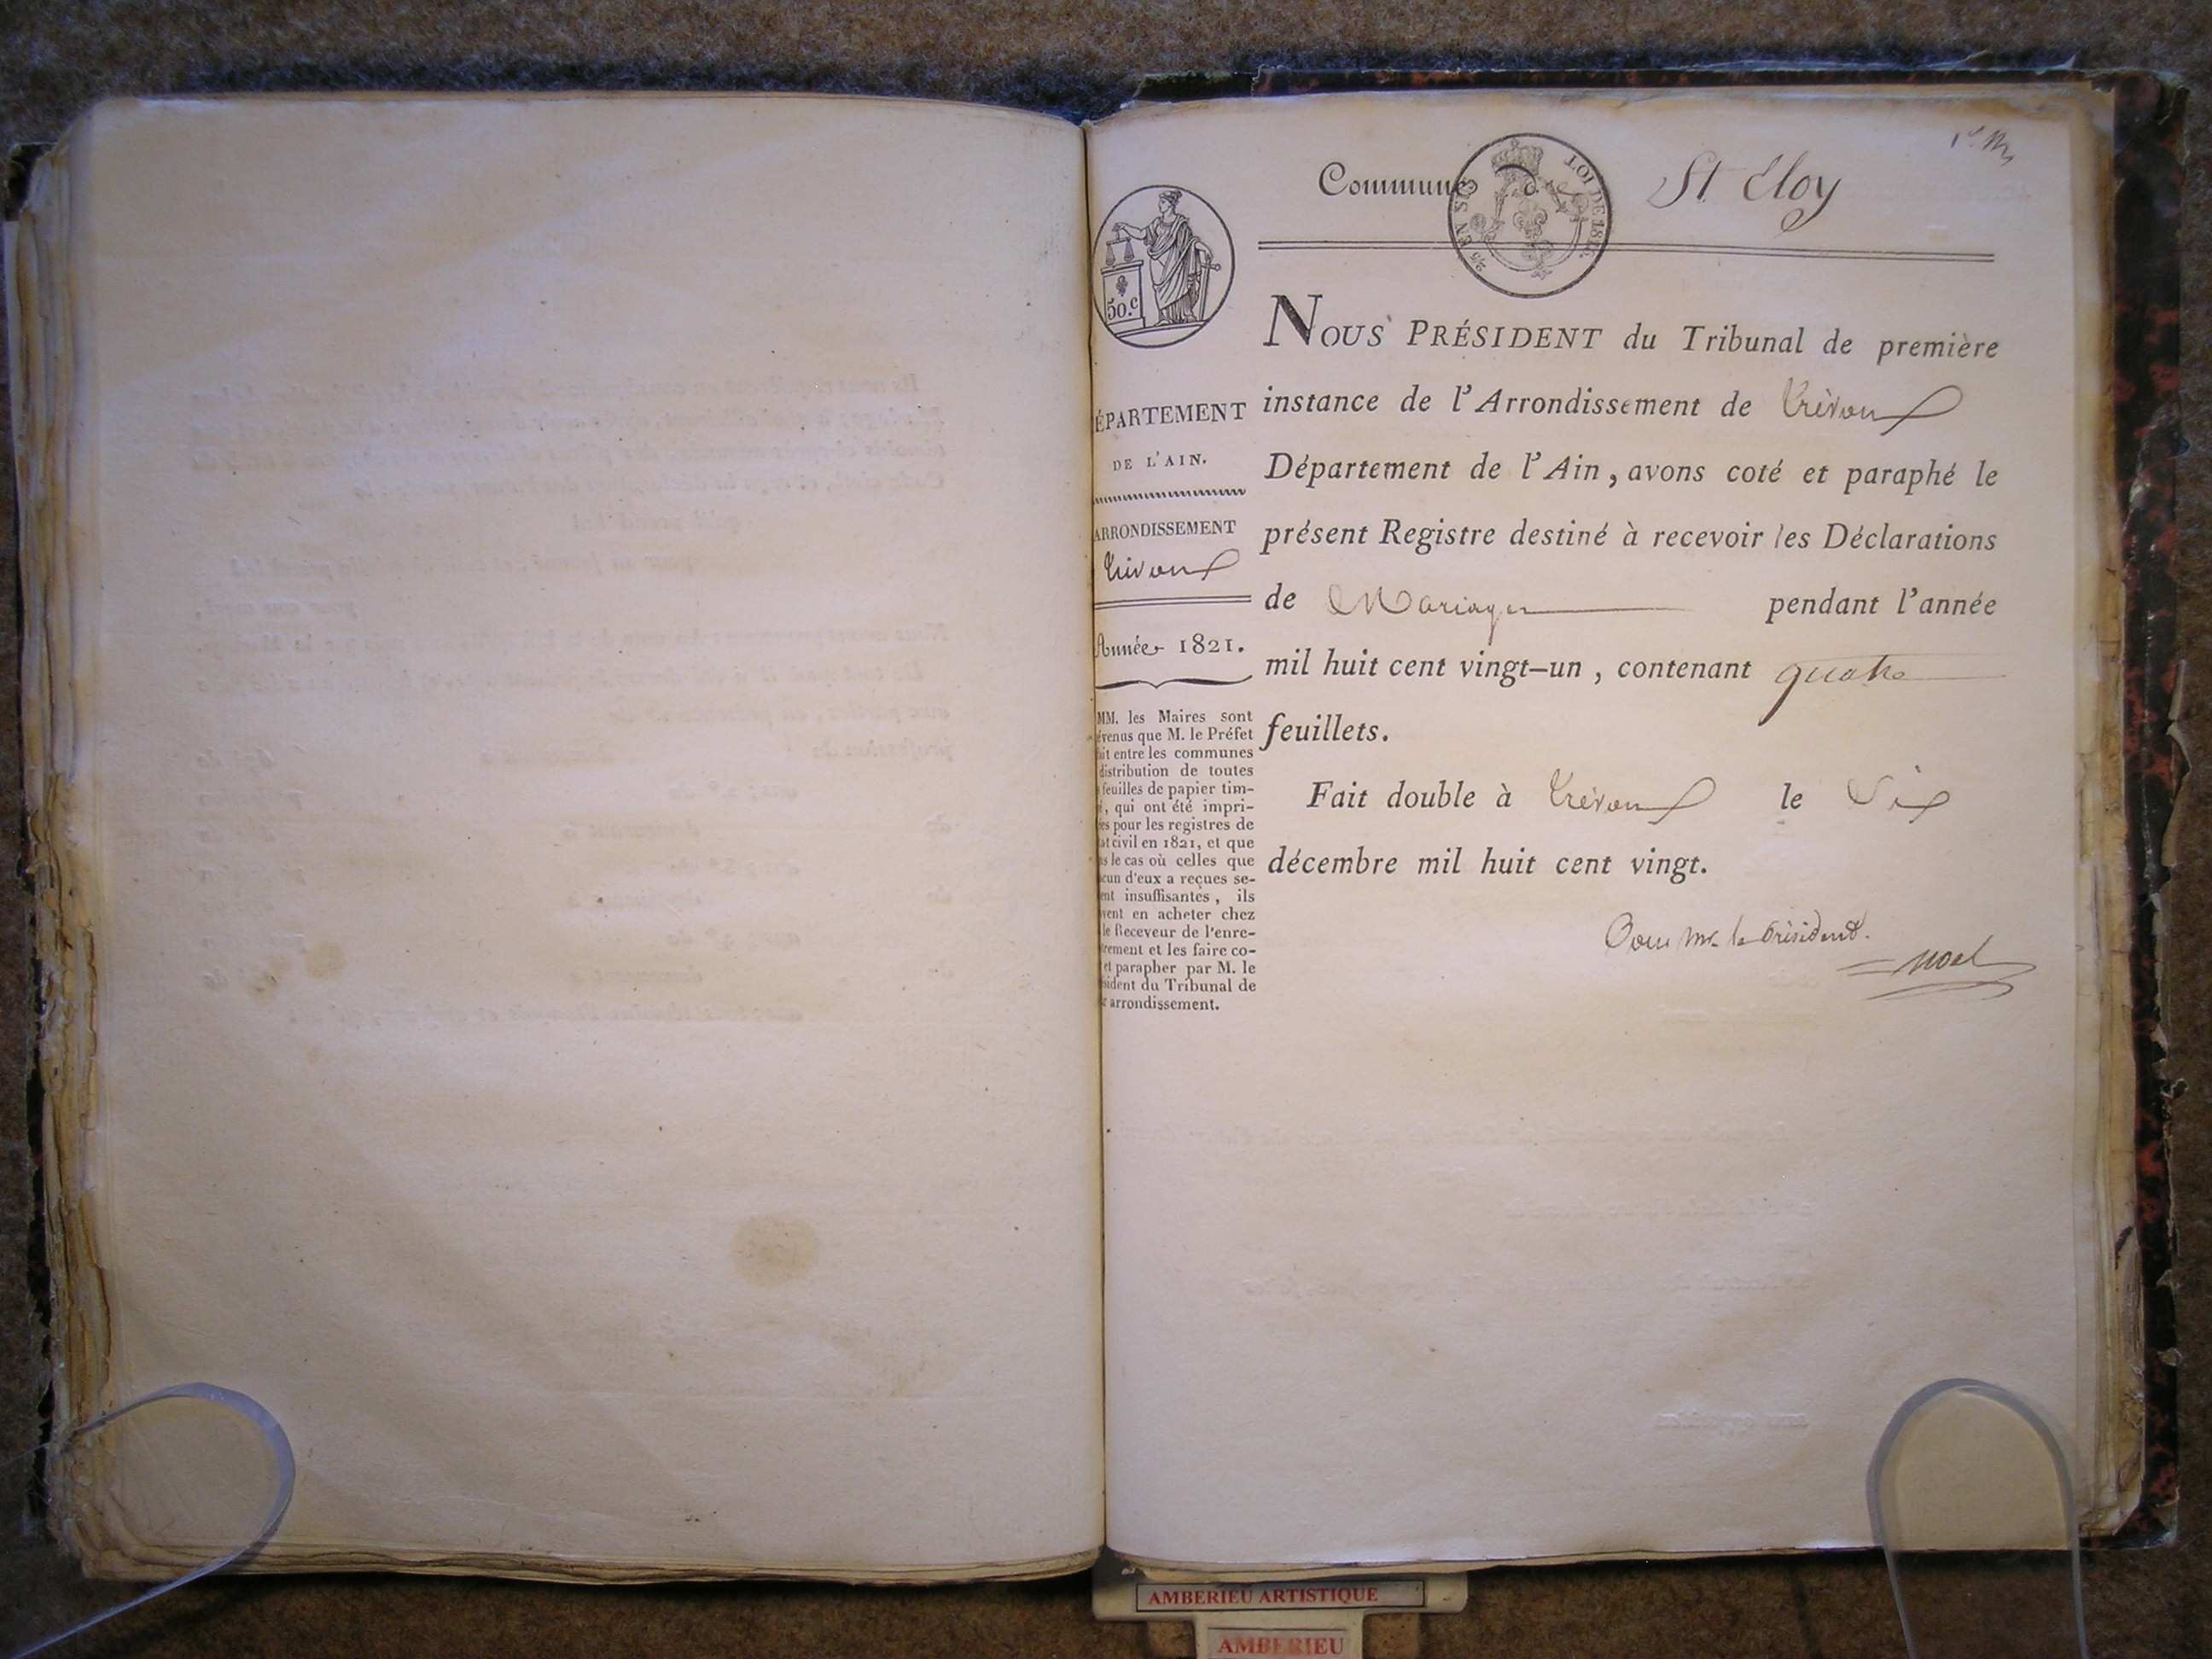 1er M
Commune St Eloy
LOI DE 1816.
EN SUS
50.c
NOUS PRÉSIDENT du Tribunal de première
instance de l'Arrondissement de Trévoux
Département de l'Ain, avons coté et paraphé le
présent Registre destiné à recevoir les Déclarations
de Mariages pendant l'année
mil huit cent vingt-un, contenant quatre
feuillets.
Fait double à Trévoux le Six
décembre mil huit cent vingt.
Pour Mr. le Président.
Noel
ÉPARTEMENT
DE L'AIN.
ARRONDISSEMENT
Trévoux
Année 1821.
MM. les Maires sont
évenus que M. le Préfet
it entre les communes
distribution de toutes
feuilles de papier tim-
, qui ont été impri-
es pour les registres de
at civil en 1821, et que
s le cas où celles que
cun d'eux a reçues se-
ent insuffisantes, ils
vent en acheter chez
le Receveur de l'enre-
trement et les faire co-
et parapher par M. le
sident du Tribunal de
r arrondissement.
AMBERIEU ARTISTIQUE
AMBERIEU